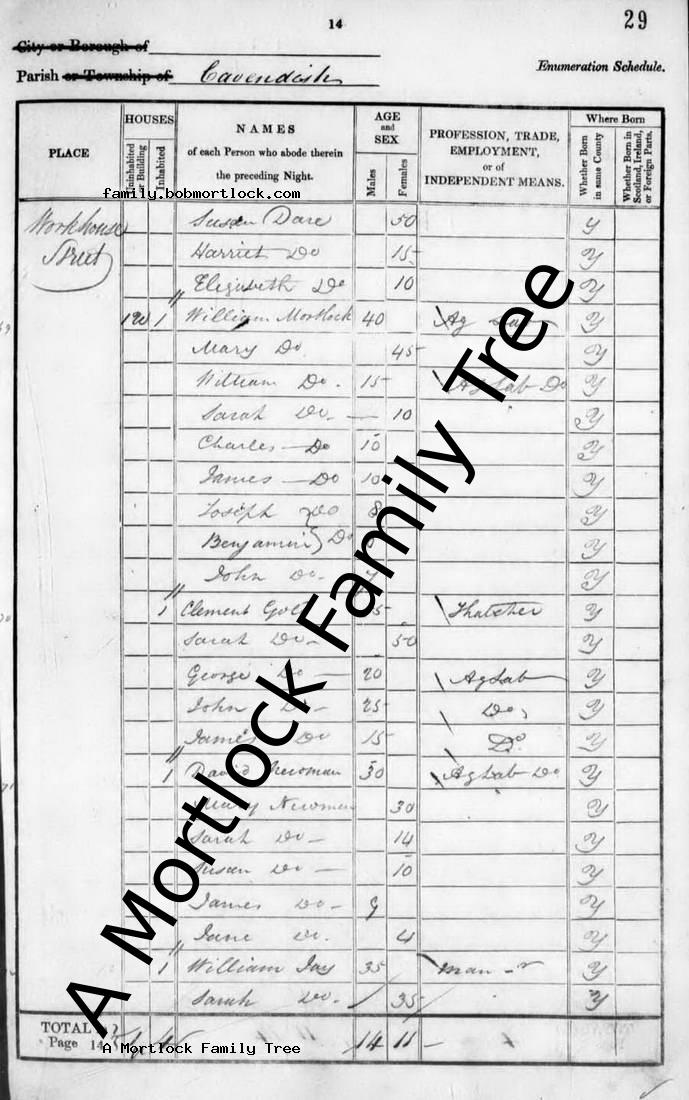 14
29
City or Borough of
Parish or Township of Cavendish
Enumeration Schedule.
PLACE
HOUSES
Uninhabited or Building
Inhabited
NAMES
of each Person who abode therein
the preceding Night.
AGE
and
SEX
Males
Females
PROFESSION, TRADE,
EMPLOYMENT,
or of
INDEPENDENT MEANS.
Where Born
Whether Born in same County
Whether Born in Scotland, Ireland, or Foreign Parts.
family.bobmortlock.com
Workhouse Susan Dare 50 Y
Street Harriet Do 15 Y
Elizabeth Do 10 Y
1 William Mortlock 40 Ag Y
Mary Do 45 Y
William Do. 15 Ag Lab Do Y
Sarah Do. 10 Y
Charles Do 10 Y
James Do 10 Y
Joseph Do 8 Y
Benjamin Do Y
John Do Y
1 Clement Thatcher Y
Sarah Do 50 Y
George Do 20 Ag Lab Y
John Do 25 Do, Y
James Do 15 Do. Y
1 David Newman 30 Ag Lab Do Y
Mary Newman 30 Y
Sarah Do 14 Y
Susan Do 10 Y
James Do 9 Y
Jane Do. 4 Y
1 William Jay 35 Y
Sarah Do. 35 Y
TOTAL in
Page 14 14 11
A Mortlock Family Tree
A Mortlock Family Tree